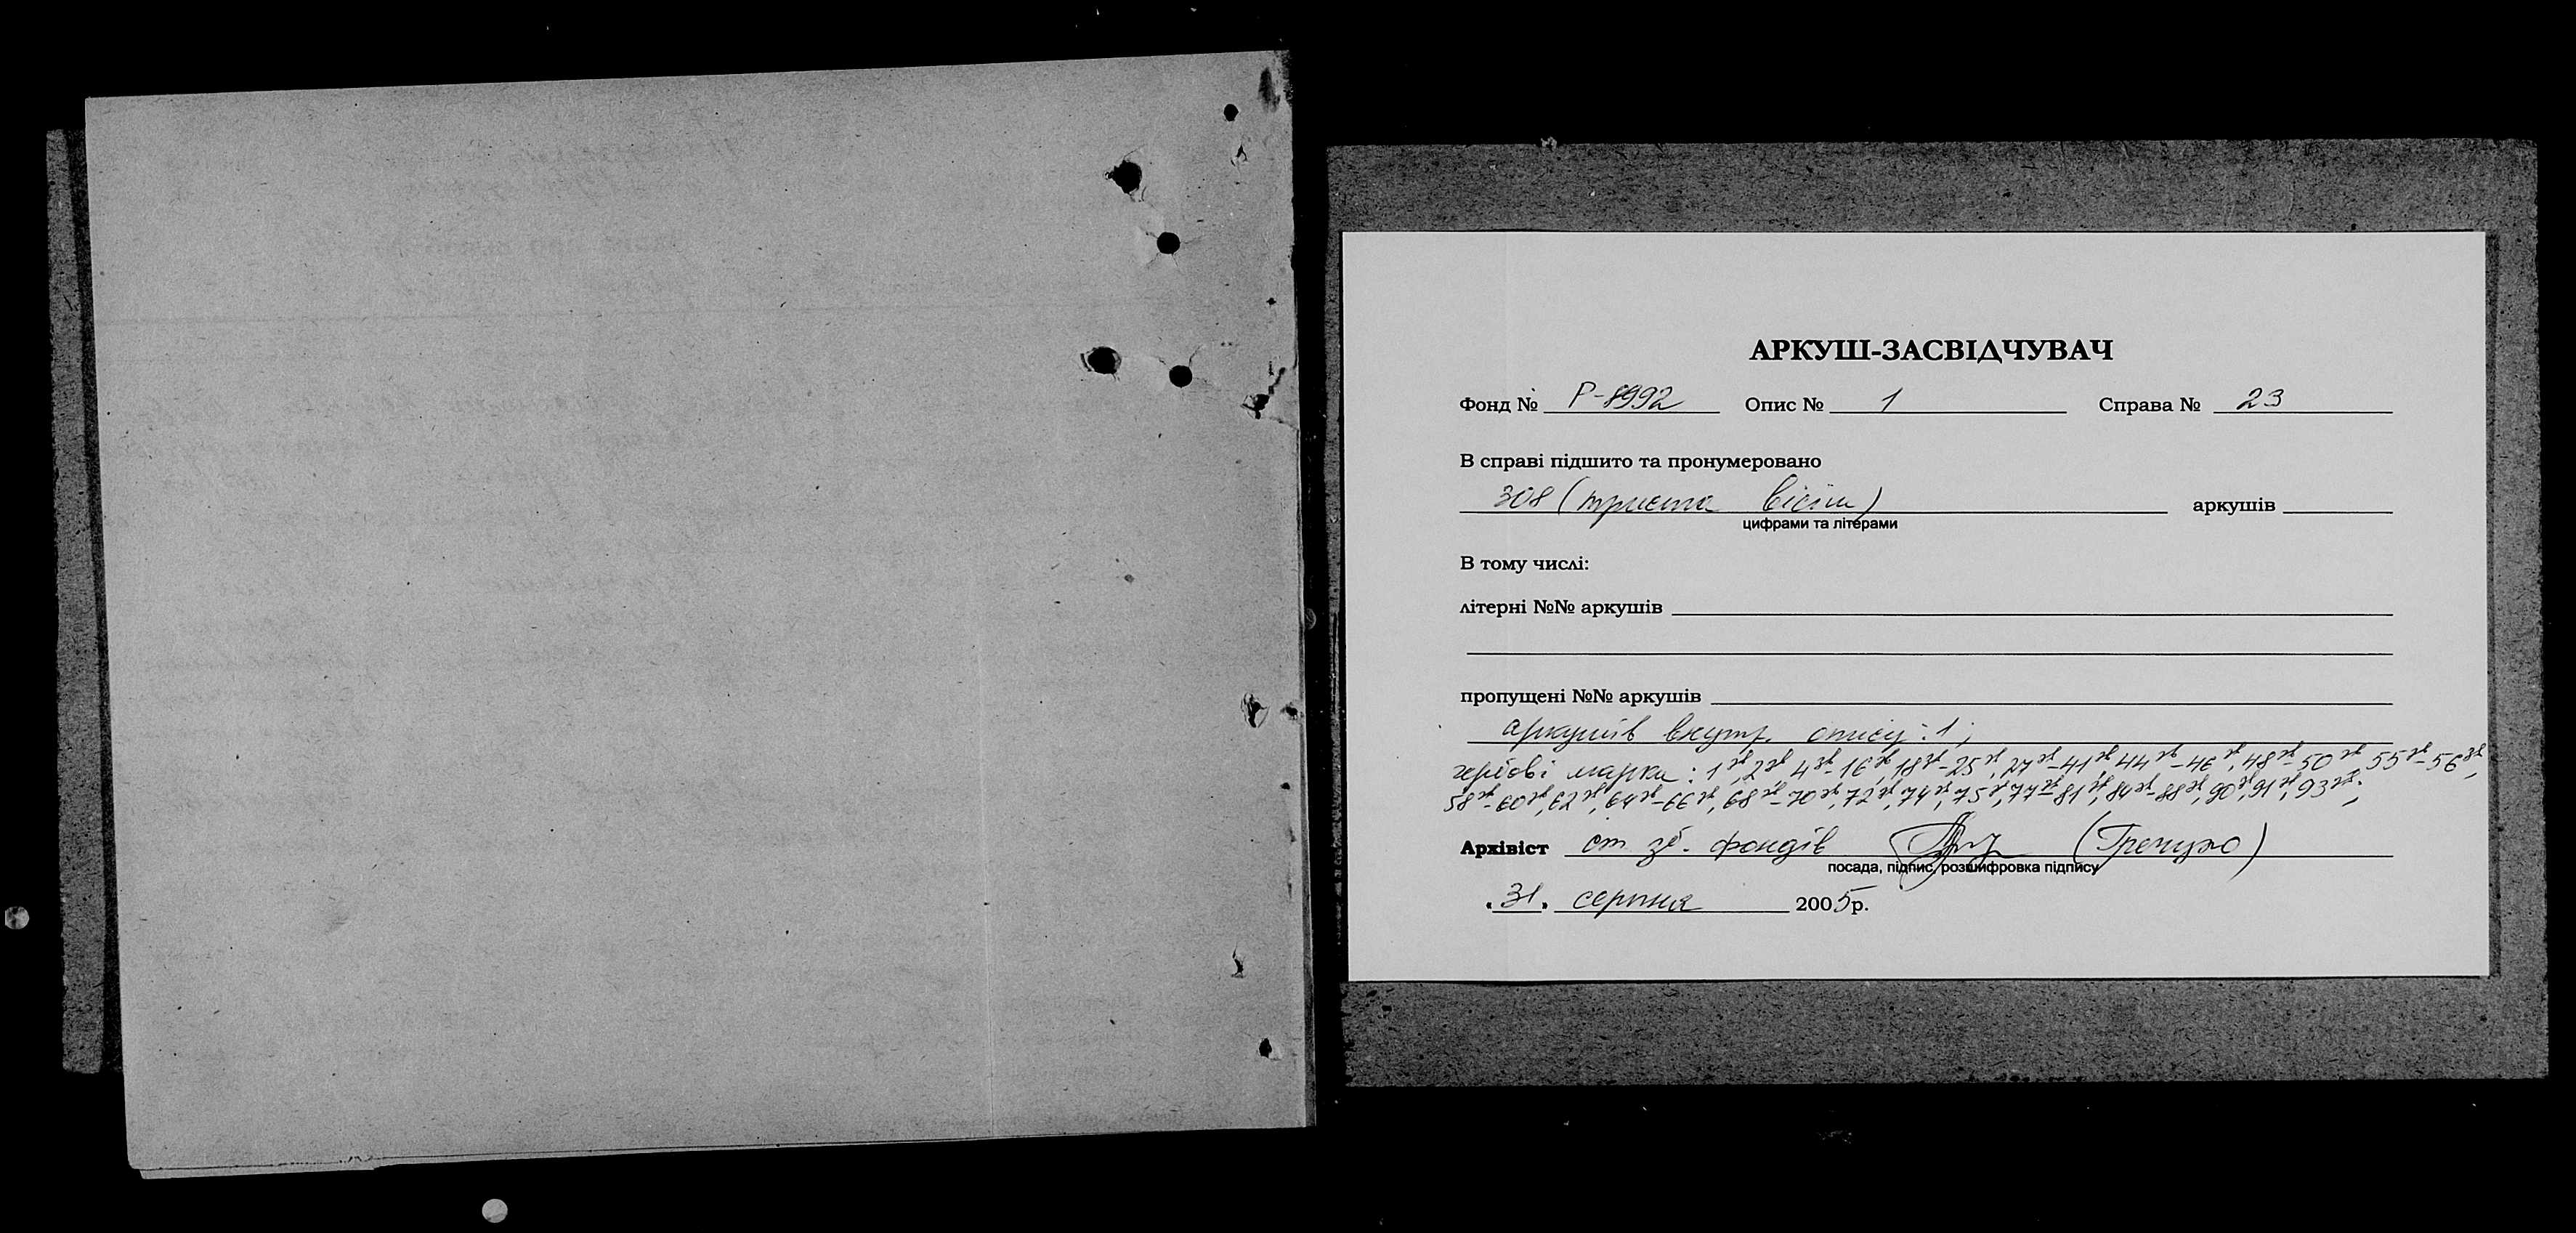 АРКУШ-ЗАСВІДЧУВАЧ
Фонд № Р-8992 Опис № 1 Справа № 23
В справі підшито та пронумеровано
308 (триста вісім) аркушів
цифрами та літерами
В тому числі:
літерні №№ аркушів
пропущені №№ аркушів
аркушів внутр. опису: 1;
гербові марки: 1зв, 2зв, 4зв-16зв, 18зв-25зв, 27зв-41зв, 44зв-46зв, 48зв-50зв, 55зв-56зв,
58зв-60зв, 62зв, 64зв-66зв, 68зв-70зв, 72зв, 74зв, 75зв, 77зв-81зв, 84зв-88зв, 90зв, 91зв, 93зв.
Архівіст ст. зб. фондів
посада, підпис, розшифровка підпису
"31" серпня 2005р.